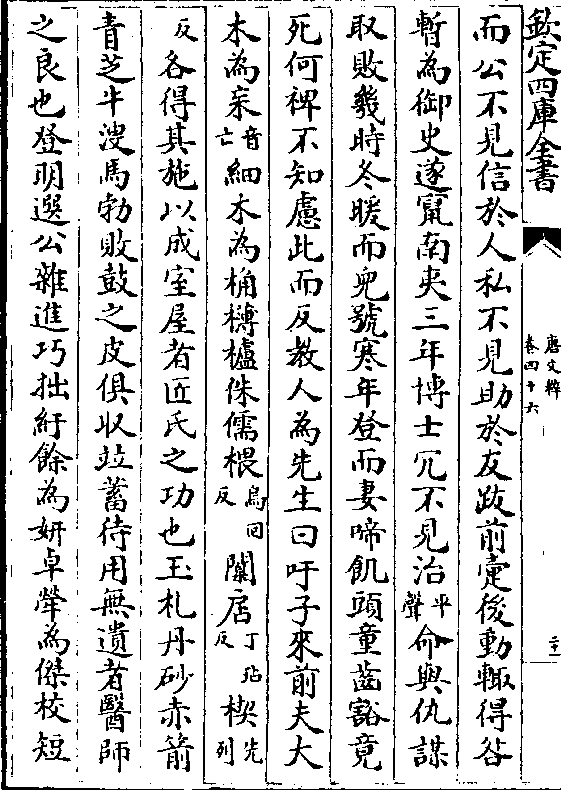 欽定四庫全書
唐文粹
卷四十六
二十
而公不見信於人私不見助於友跋前疐後動輒得咎
暫為御史遂竄南夷三年博士冗不見治平聲命與仇謀
取敗幾時冬暖而兒號寒年登而妻啼飢頭童齒豁竟
死何裨不知慮此而反教人為先生曰吁子來前夫大
木為杗音亡細木為桷欂櫨侏儒椳烏回反闑扂丁玷反楔先列
反各得其施以成室屋者匠氏之功也玉札丹砂赤箭
青芝牛溲馬勃敗鼓之皮俱收竝蓄待用無遺者醫師
之良也登明選公雜進巧拙紆餘為妍卓犖為傑校短